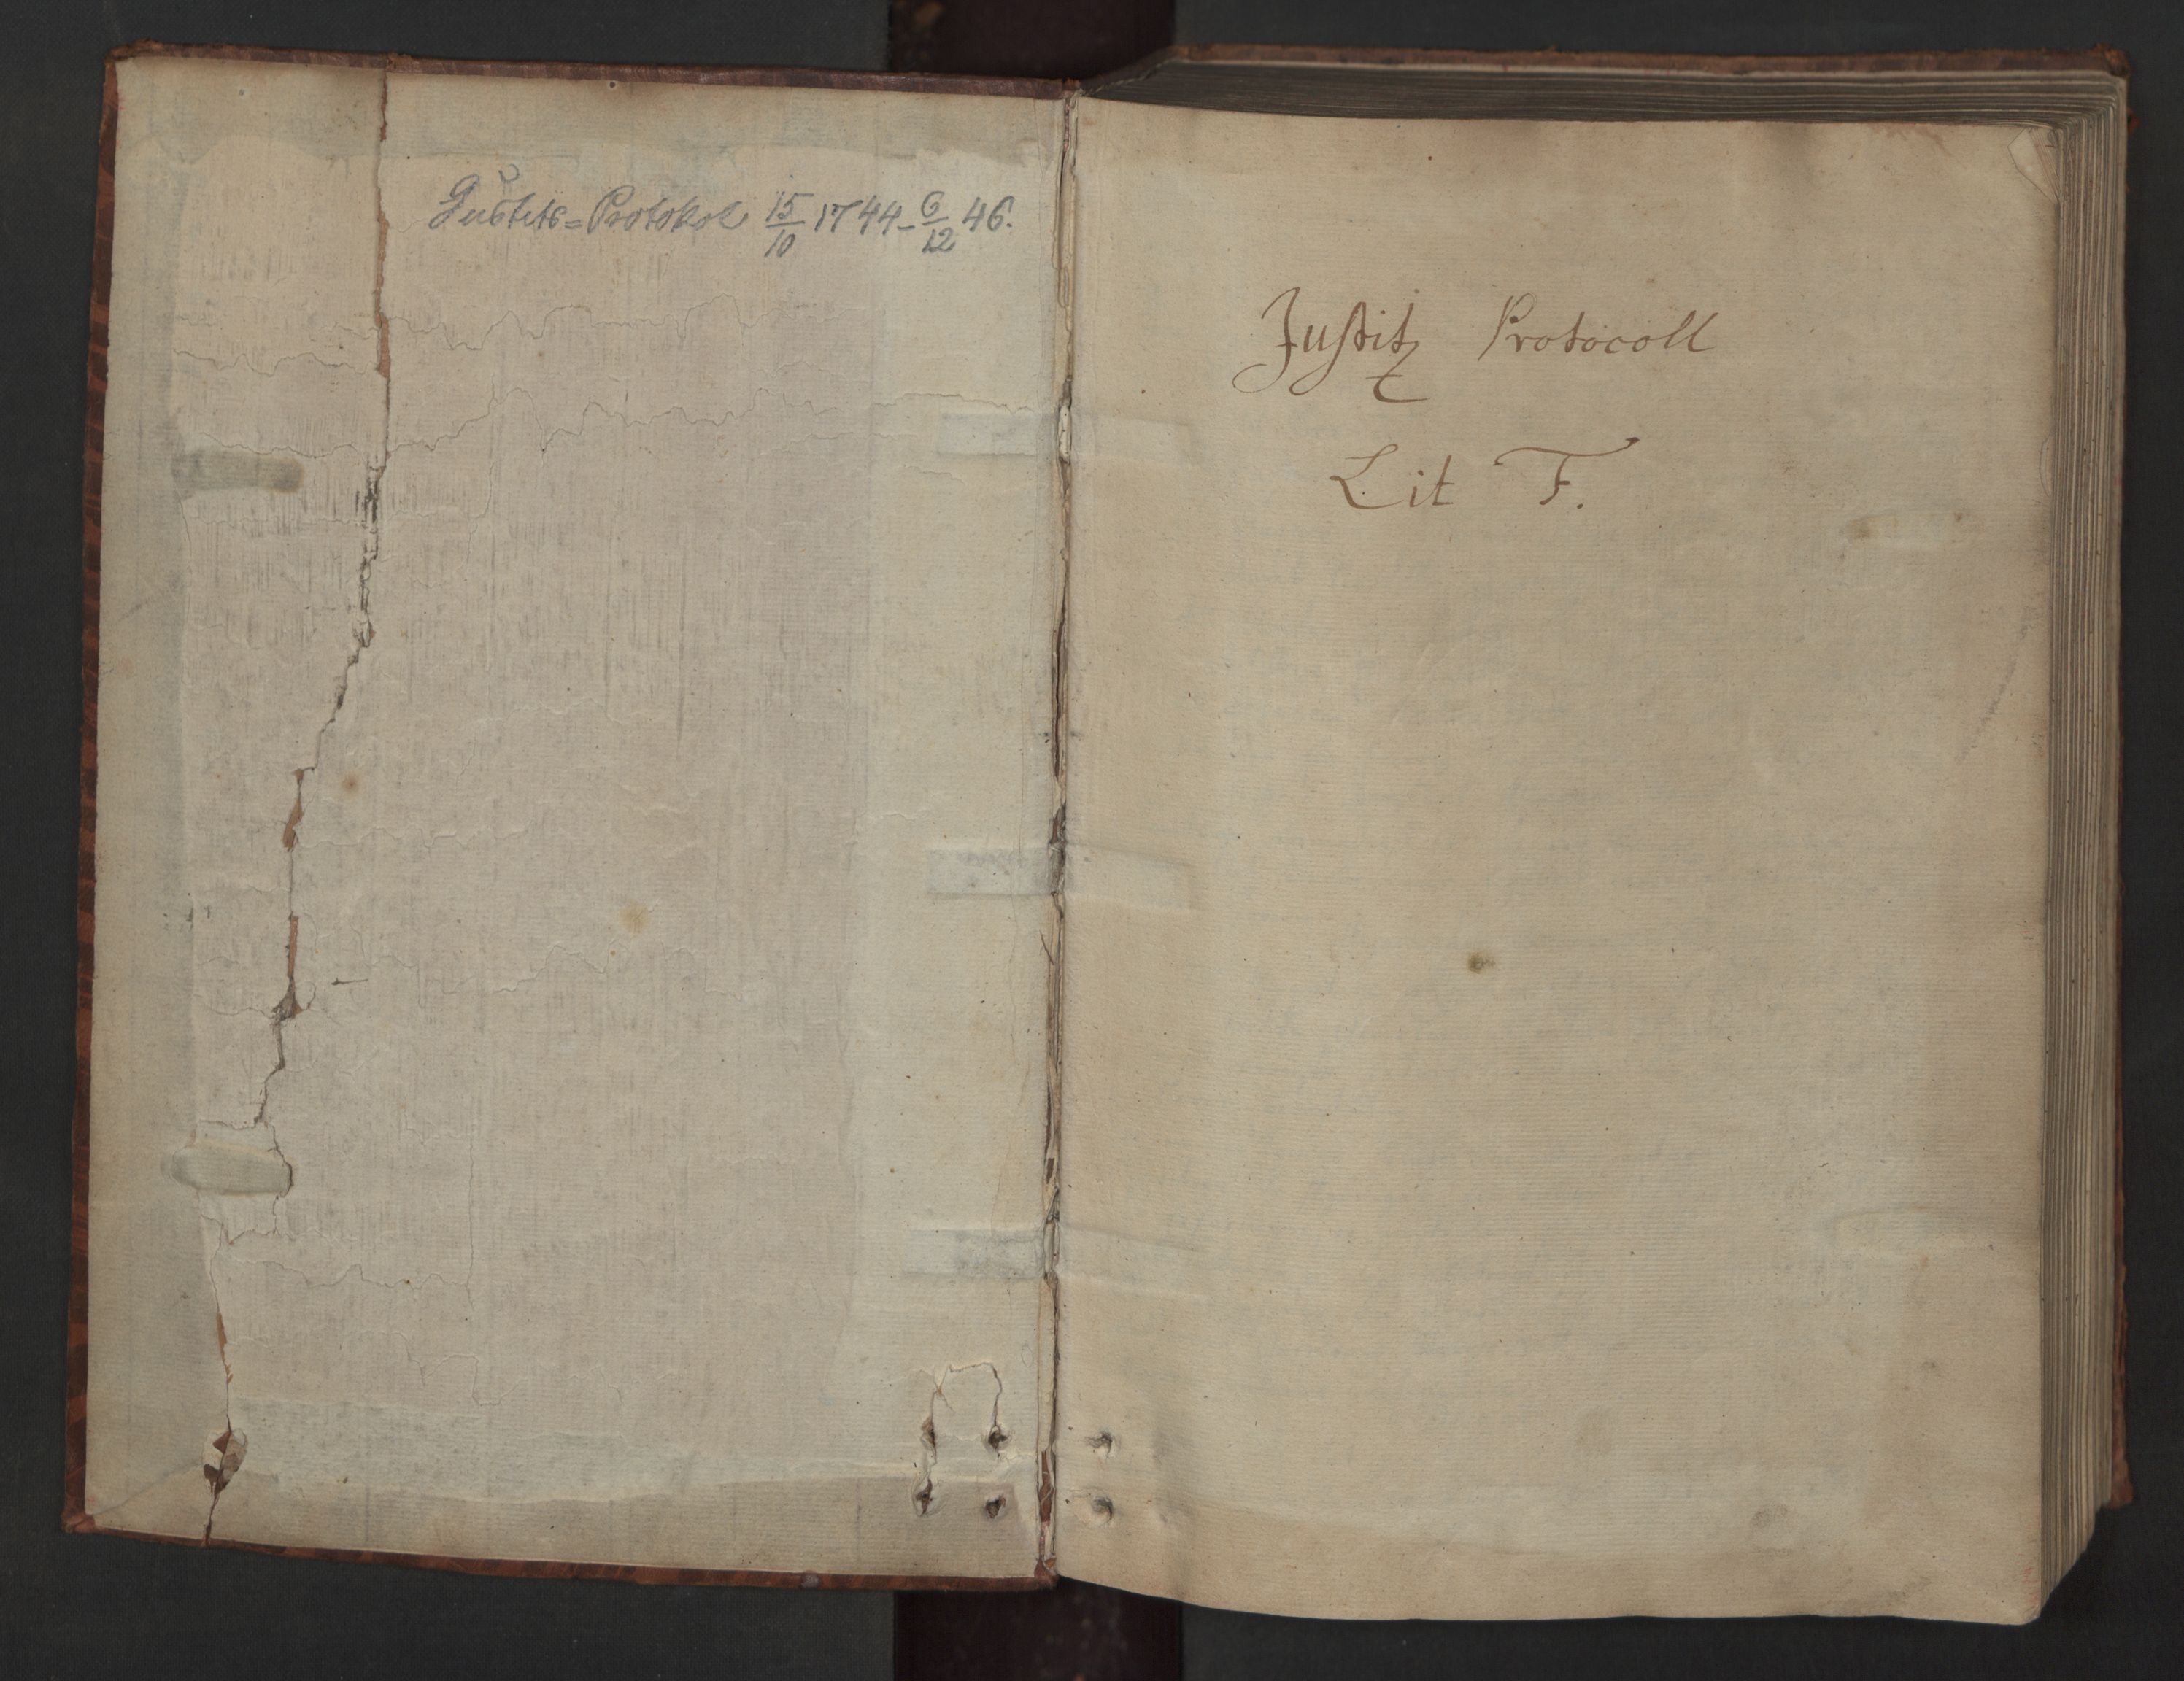 Justits=Protokol 15/10 1744 - 6/12 46.
Justitz Protocoll
Lit F.